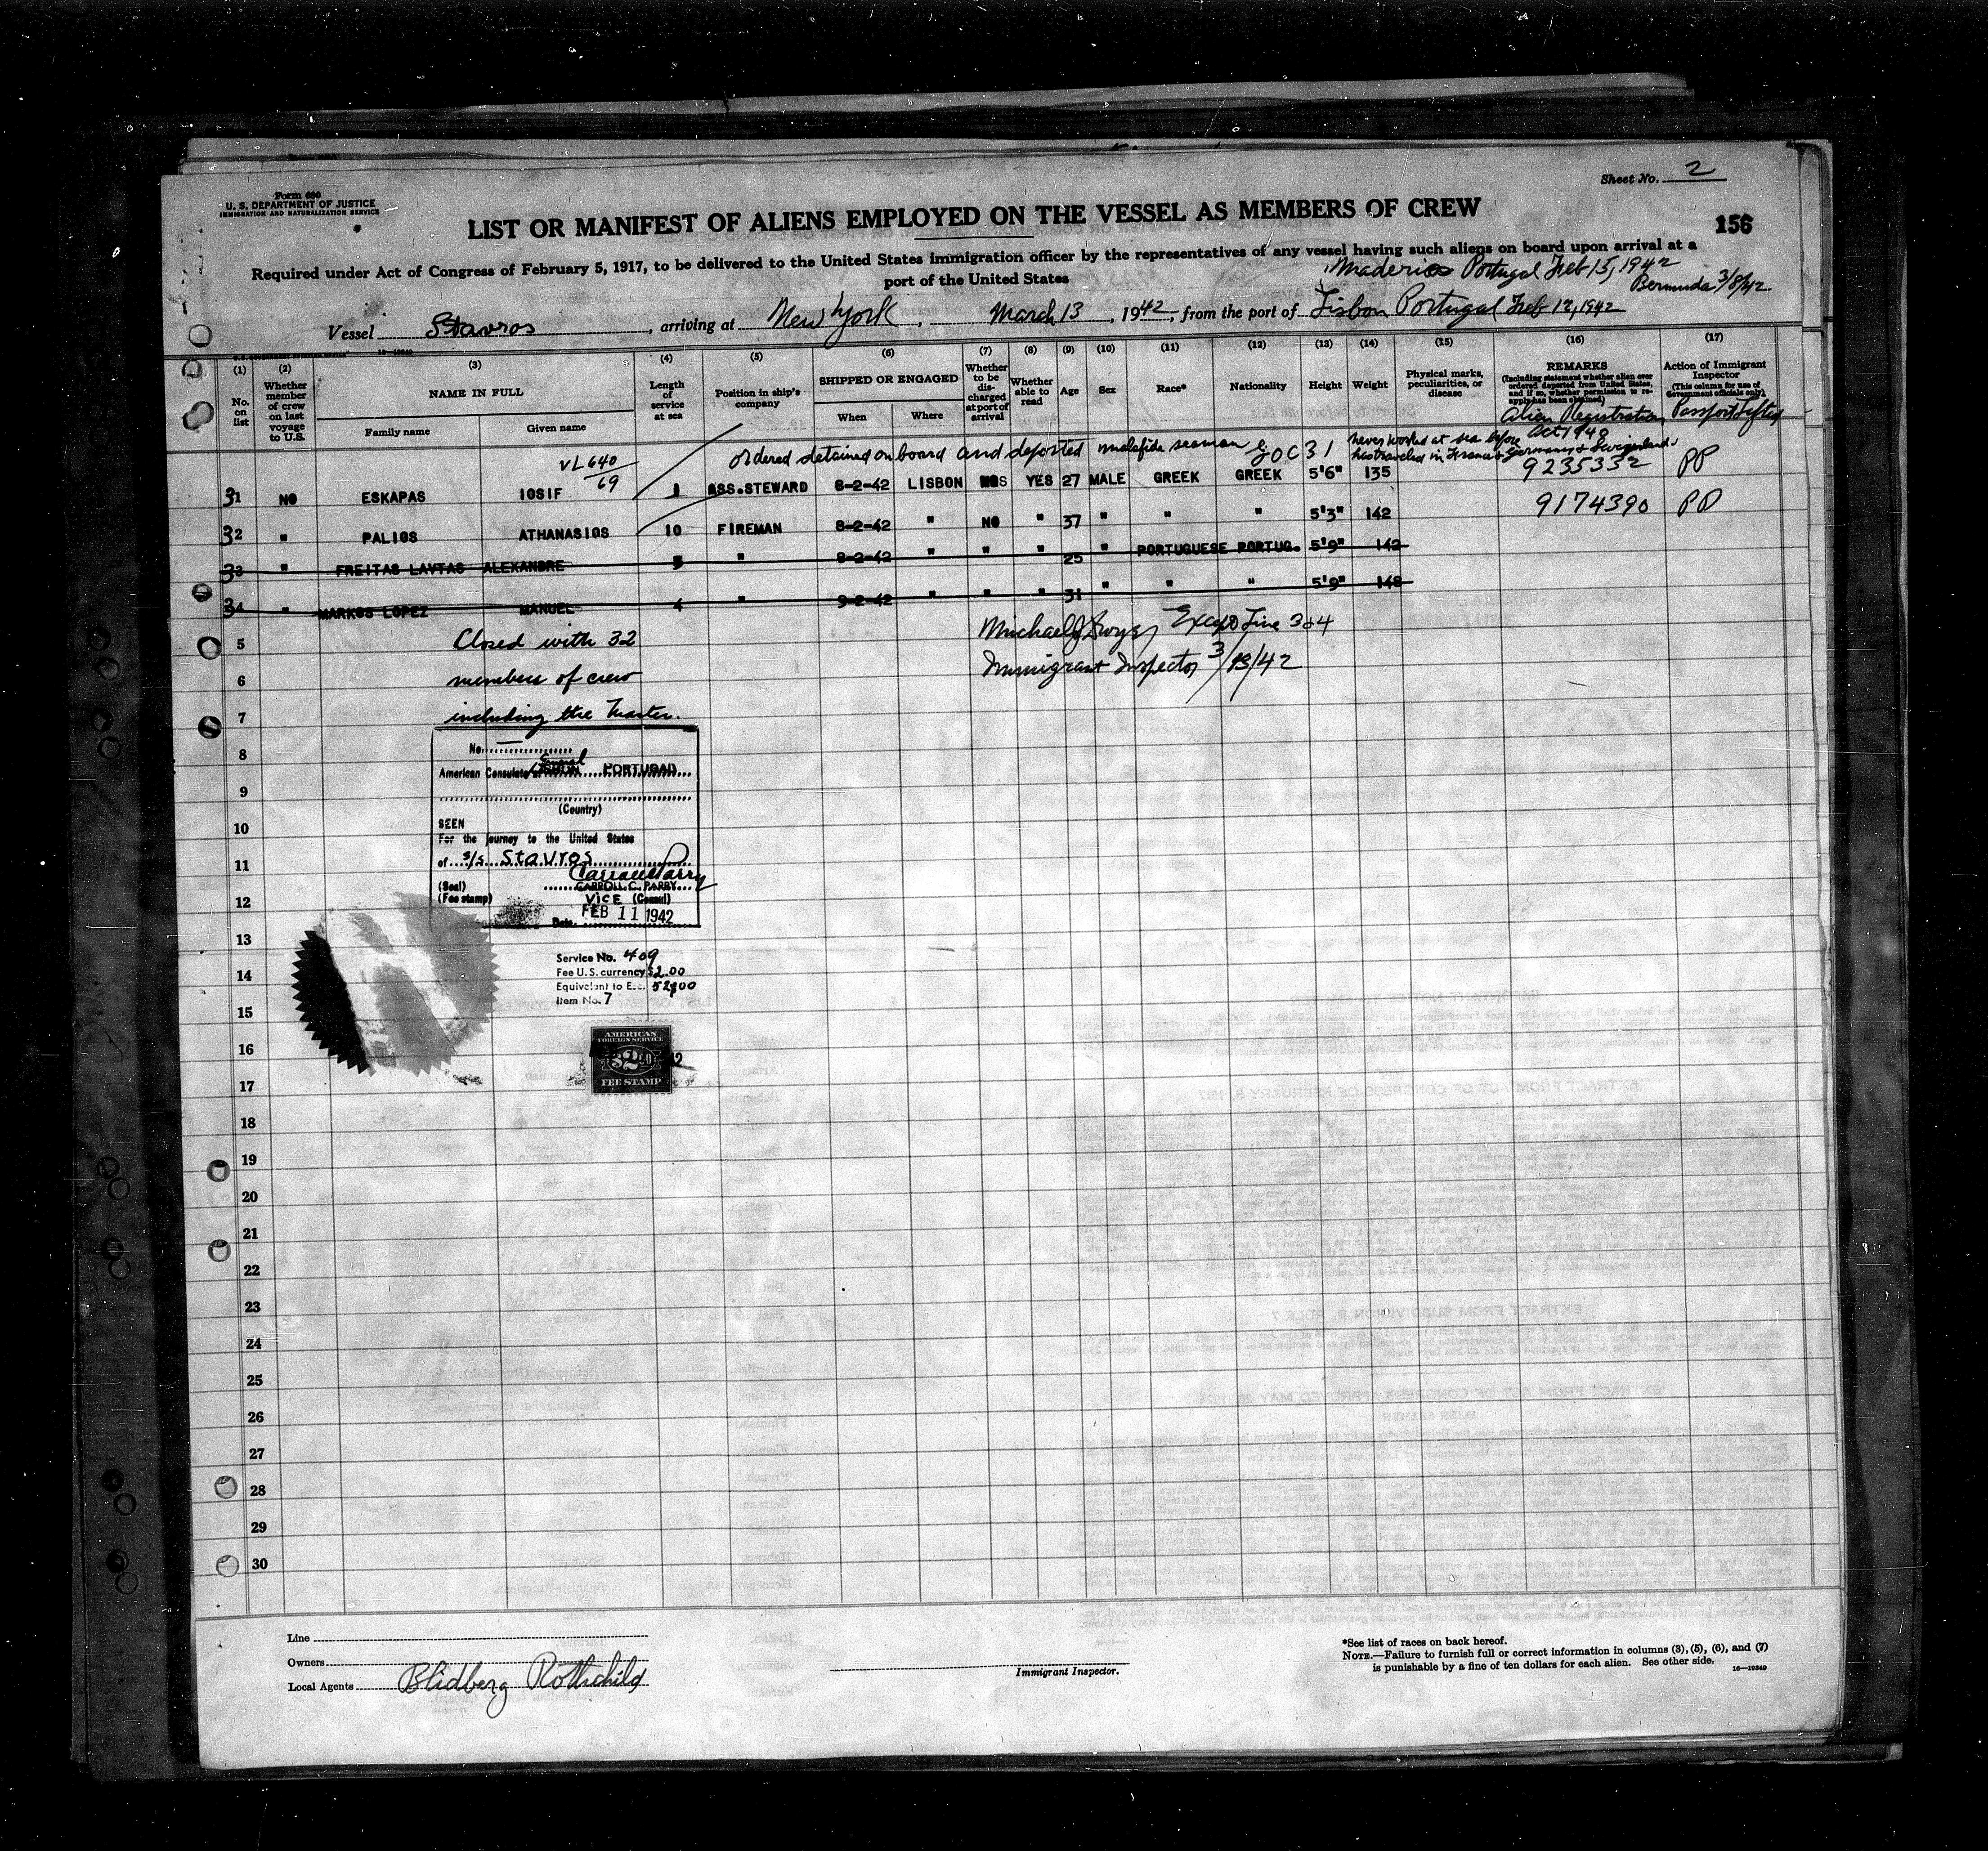 Form 680
U. S. DEPARTMENT OF JUSTICE
IMMIGRATION AND NATURALIZATION SERVICE
Sheet No. 2
LIST OR MANIFEST OF ALIENS EMPLOYED ON THE VESSEL AS MEMBERS OF CREW
156
Required under Act of Congress of February 5, 1917, to be delivered to the United States immigration officer by the representatives of any vessel having such aliens on board upon arrival at a
port of the United States
Portugal Feb 15, 1942
Bermuda 3/8/42
Vessel Stavros, arriving at New York, March 13, 1942, from the port of Lisbon Portugal Feb 12, 1942
(1) No. on list
(2) Whether member of crew on last voyage to U.S.
(3) NAME IN FULL
Family name Given name
(4) Length of service at sea
(5) Position in ship's company
(6) SHIPPED OR ENGAGED
When Where
(7) Whether to be discharged at port of arrival
(8) Whether able to read
(9) Age
(10) Sex
(11) Race*
(12) Nationality
(13) Height
(14) Weight
(15) Physical marks, peculiarities, or disease
(16) REMARKS
(Including statement whether alien ever ordered deported from United States, and if so, whether permission to reapply has been obtained)
(17) Action of Immigrant Inspector
(This column for use of Government officials only)
Alien Registration Act 1940
Passport
VL 640/69
ordered detained on board and deported malafide seaman
never worked at sea before
has traveled in France, Germany &
31 NO ESKAPAS IOSIF 1 ASS.STEWARD 8-2-42 LISBON YES 27 MALE GREEK GREEK 5'6" 135 9235332 PP
32 " PALIOS ATHANASIOS 10 FIREMAN 8-2-42 " NO " 37 " " " 5'3" 142 9174390 PP
33 " FREITAS LAVTAS ALEXANDRE 5 " 8-2-42 " " " 25 " PORTUGUESE PORTUG. 5'9" 142
34 " MARKOS LOPEZ MANUEL 4 " 9-2-42 " " " 31 " " " 5'9" 148
5 Closed with 32
6 members of crew
7 including the Master.
Michael J Except Line 3 & 4
Immigrant Inspector 3/13/42
8
9
10
11
12
13
14
15
16
17
18
19
20
21
22
23
24
25
26
27
28
29
30
No.
American Consulate General PORTUGAL
(Country)
SEEN
For the journey to the United States
of s/s Stavros
Carroll C Parry
CARROLL C. PARRY
(Seal)
(Fee stamp)
VICE (Consul)
Date FEB 11 1942
Service No. 409
Fee U.S. currency $2.00
Equivalent to Esc. 52$00
Item No. 7
AMERICAN
FOREIGN SERVICE
$2.00
FEE STAMP
Line
Owners
Local Agents Blidberg Rothchild
Immigrant Inspector.
*See list of races on back hereof.
NOTE.—Failure to furnish full or correct information in columns (3), (5), (6), and (7)
is punishable by a fine of ten dollars for each alien. See other side.